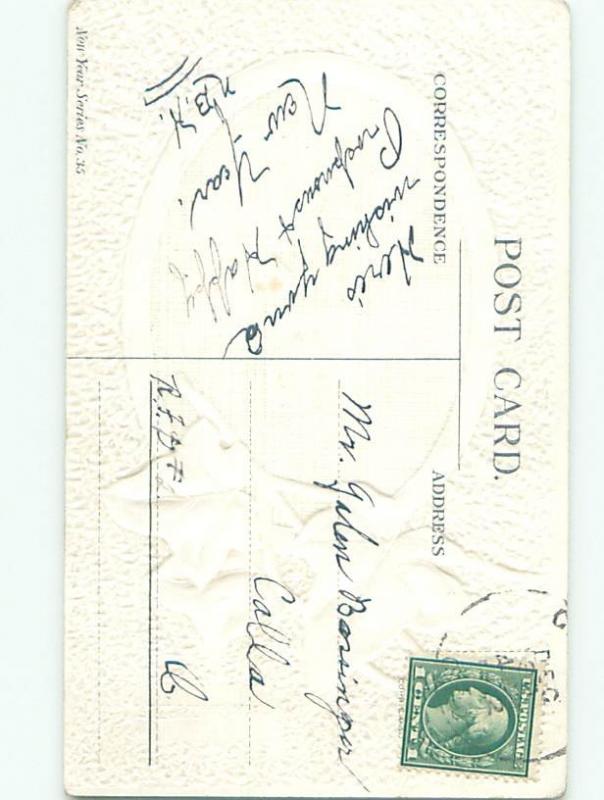 POST CARD.
CORRESPONDENCE
Here's
wishing you a
Prosperous & Happy
New Year.
N.B.H.
ADDRESS
Mr. Galen Basinger
Calla
O
R.F.D #
New Year Series No. 35
DEC
U.S. POSTAGE
1 CENT 1